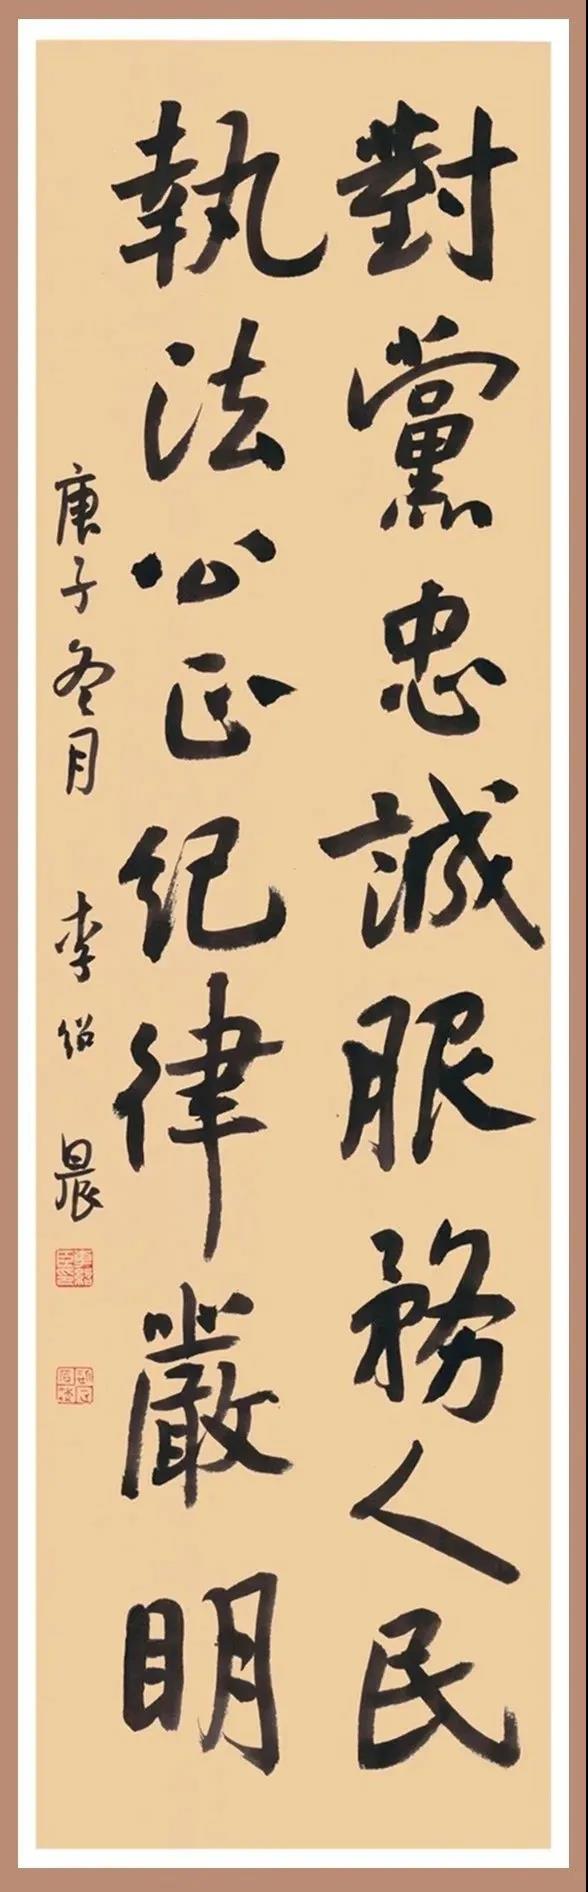 對黨忠誠服務人民
執法公正紀律嚴明
庚子冬月 李紹晨